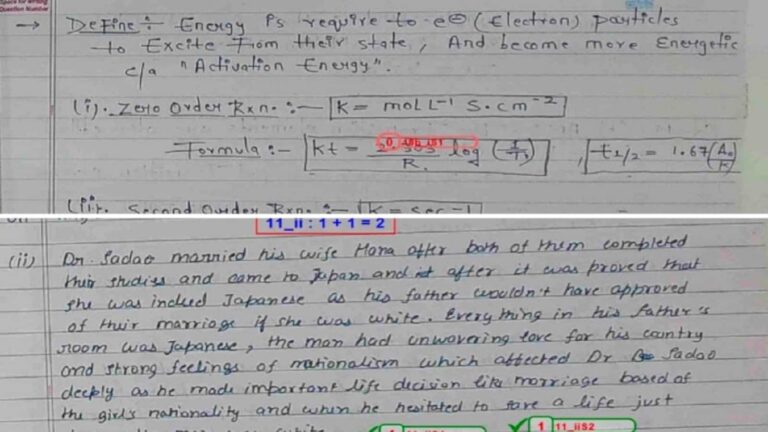 Space for Writing
Question Number
→ Define:- Energy is require to e⊖ (Electron) particles
to Excite From their state, And become more Energetic
c/a "Activation Energy".
(i). Zero Order Rxn. :- K = mol L⁻¹ S. cm⁻²
Formula :- Kt = 2.303/R. log , t1/2 = 1.67 (A₀/K)
(ii). Second Order Rxn. :- K = sec⁻¹
11_ii : 1 + 1 = 2
(ii) Dr. Sadao married his wife Hana after both of them completed
their studies and came to Japan and after it was proved that
she was indeed Japanese as his father wouldn't have approved
of their marriage if she was white. Everything in his father's
room was Japanese, the man had unwavering love for his country
and strong feelings of nationalism which affected Dr Sadao
deeply as he made important life decision like marriage based of
the girl's nationality and when he hesitated to save a life just
1 11_iiS2